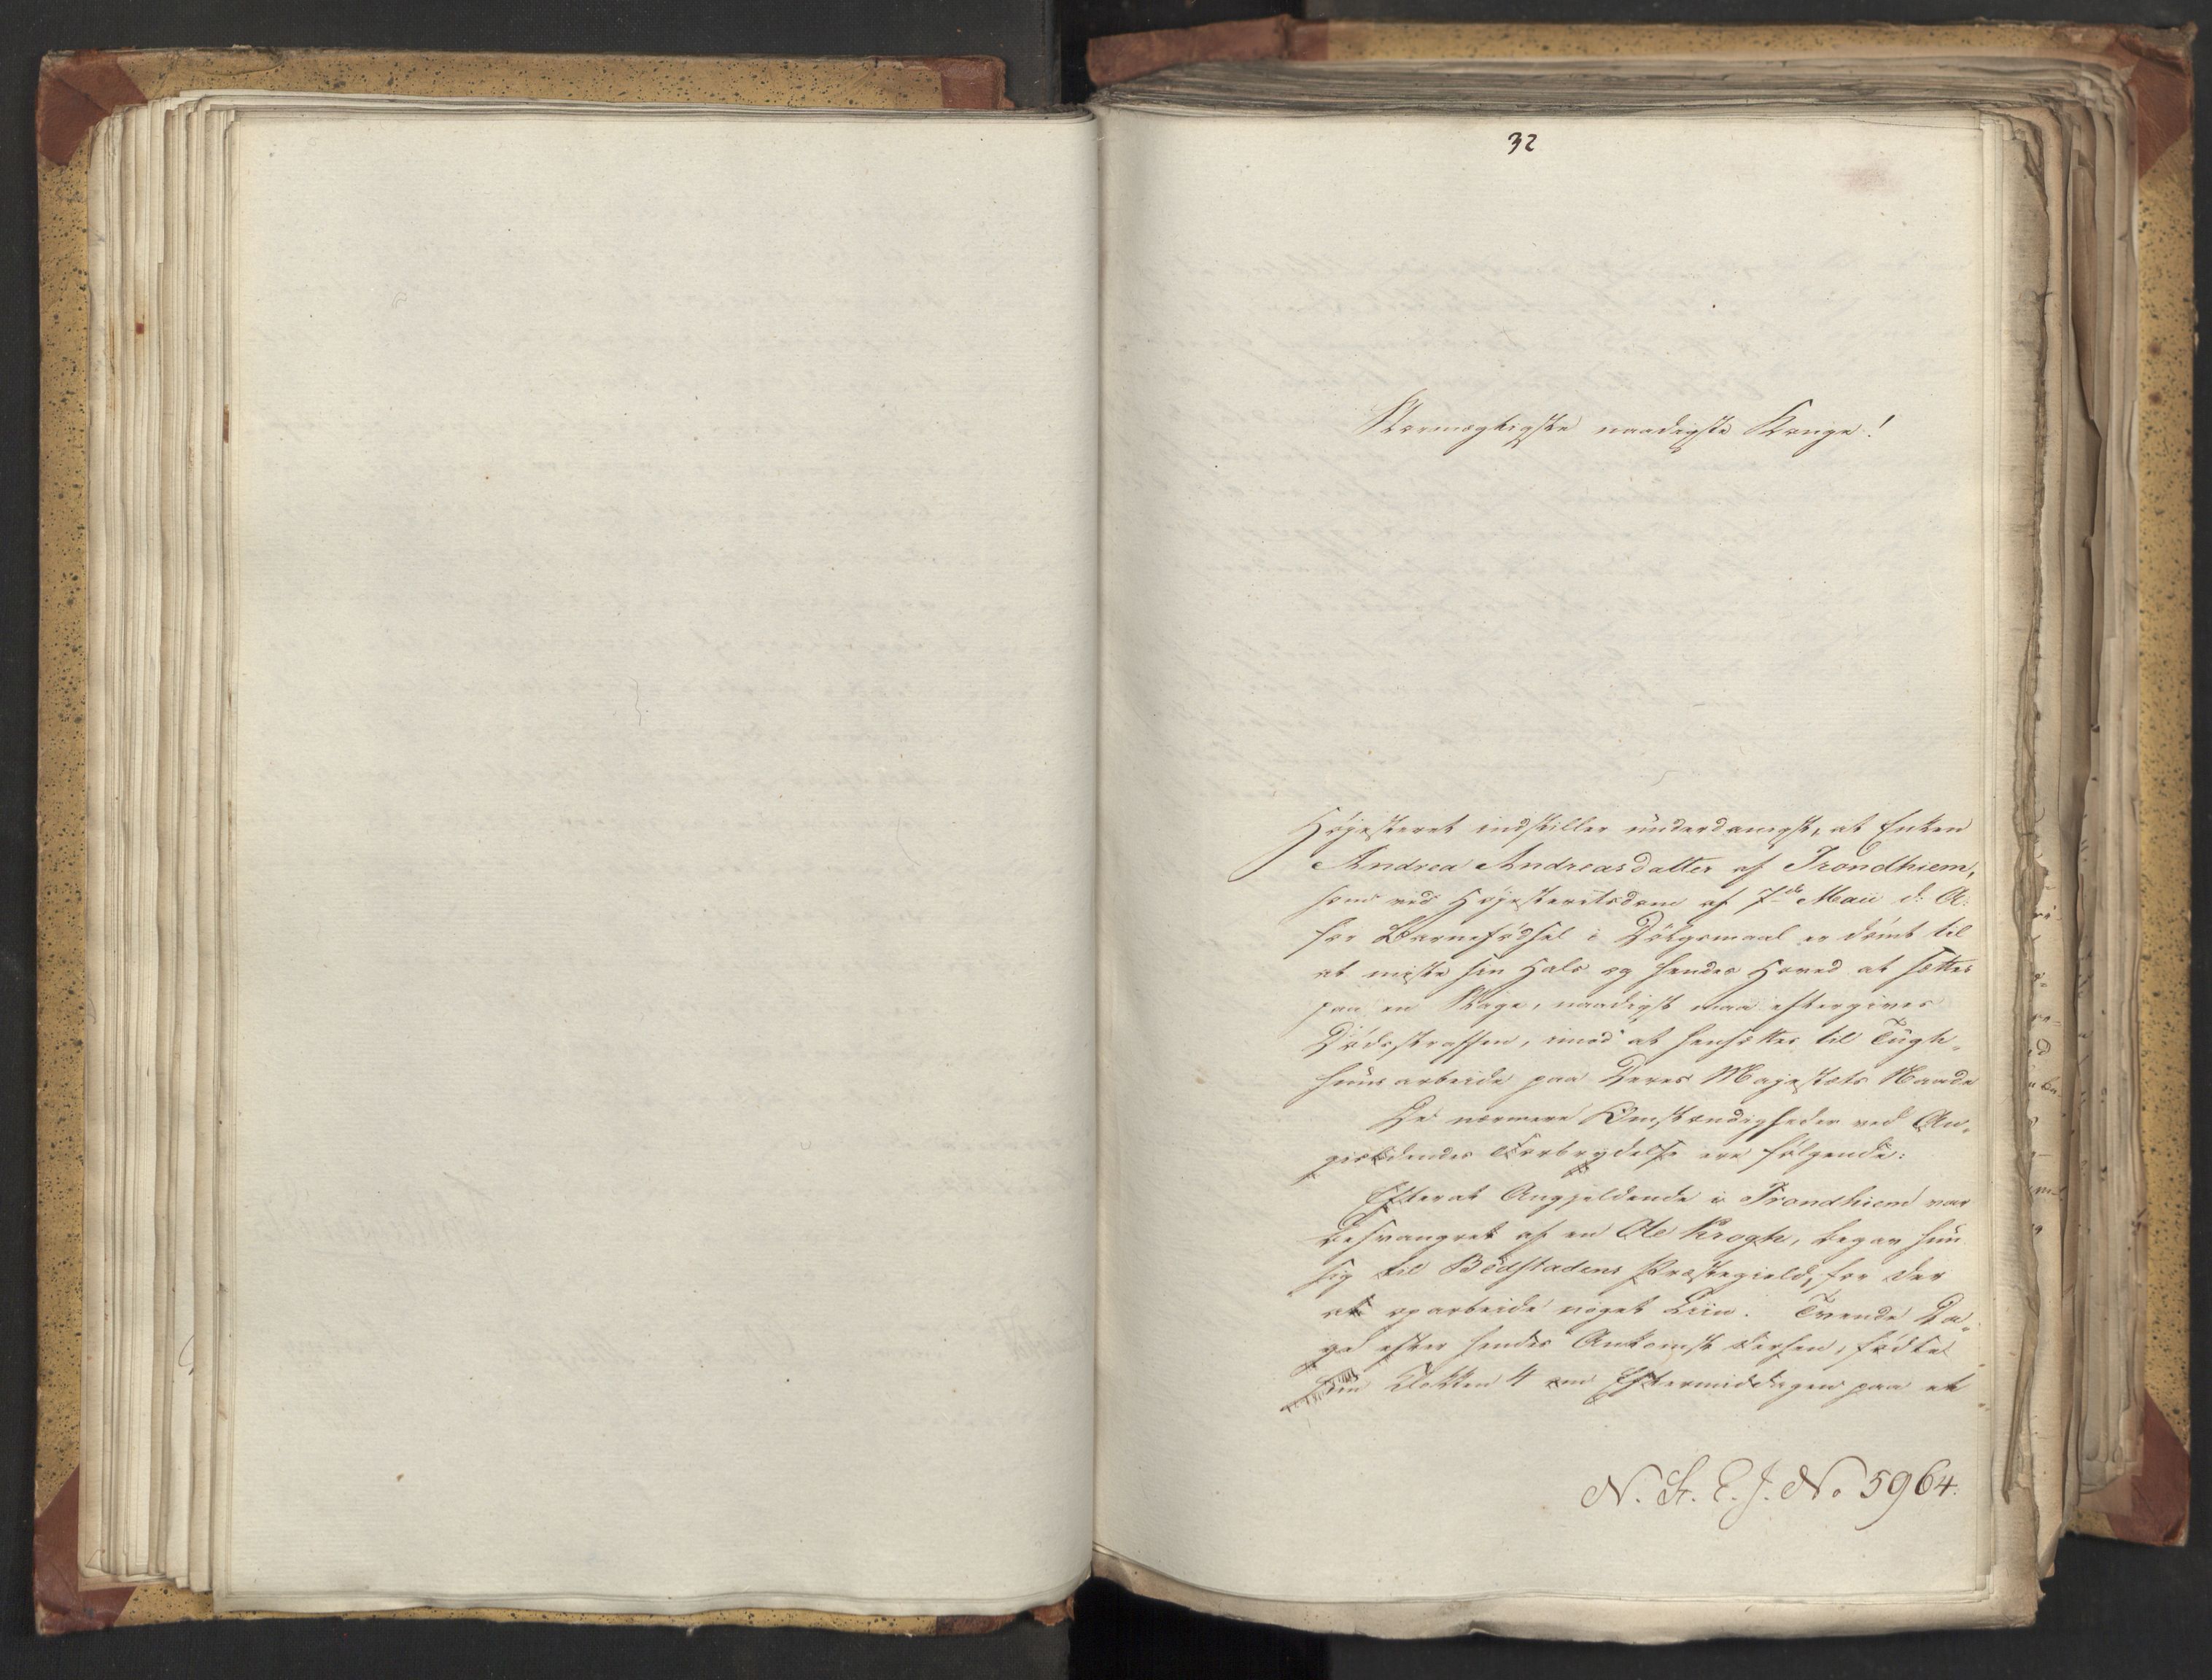 32
Stormægtigste naadigste Konge!
Höjesteret indstiller underdanigst, at Enken
Andrea Andreasdatter af Trondhiem,
som ved Höjesteretsdom af 7de Maii d: A:
for Barnefödsel i Dölgsmaal er dömt til
at miste sin Hals og hendes Hoved at sættes
paa en Stage, naadigst maa eftergives
Dödsstraffen, imod at hensættes til Tugt-
huusarbeide paa Deres Majestæts Naade
De nærmere Omstændigheder ved An-
gieldendes Forbrydelse ere fölgende:
Efterat Angjeldende i Trondhiem var
besvangret af en Ole Krogh, begav hun
sig til Bödstadens Præstegield, for der
at oparbeide noget Liin. Tvende Da-
ge efter hendes Ankomst dersen, födte
hun Klokken 4 om Eftermiddagen paa et
N. St. E. J. No 5964.